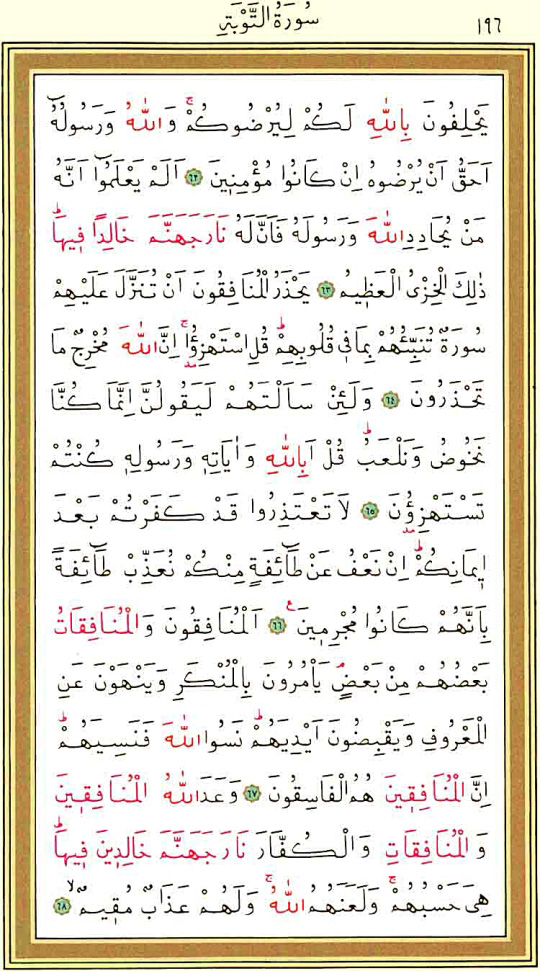 سُورَةُ التَّوْبَةِ ١٩٦
يَحْلِفُونَ بِاللّٰهِ لَكُمْ لِيُرْضُوكُمْۚ وَاللّٰهُ وَرَسُولُهُٓ
اَحَقُّ اَنْ يُرْضُوهُ اِنْ كَانُوا مُؤْمِنِينَ ﴿٦٢﴾ اَلَمْ يَعْلَمُٓوا اَنَّهُ
مَنْ يُحَادِدِ اللّٰهَ وَرَسُولَهُ فَاَنَّ لَهُ نَارَ جَهَنَّمَ خَالِدًا فِيهَاۜ
ذٰلِكَ الْخِزْىُ الْعَظِيمُ ﴿٦٣﴾ يَحْذَرُ الْمُنَافِقُونَ اَنْ تُنَزَّلَ عَلَيْهِمْ
سُورَةٌ تُنَبِّئُهُمْ بِمَا فِى قُلُوبِهِمْۜ قُلِ اسْتَهْزِؤُ۫اۚ اِنَّ اللّٰهَ مُخْرِجٌ مَا
تَحْذَرُونَ ﴿٦٤﴾ وَلَئِنْ سَاَلْتَهُمْ لَيَقُولُنَّ اِنَّمَا كُنَّا
نَخُوضُ وَنَلْعَبُۜ قُلْ اَبِاللّٰهِ وَاٰيَاتِهِ وَرَسُولِهِ كُنْتُمْ
تَسْتَهْزِؤُ۫نَ ﴿٦٥﴾ لَا تَعْتَذِرُوا قَدْ كَفَرْتُمْ بَعْدَ
اِيمَانِكُمْۜ اِنْ نَعْفُ عَنْ طَٓائِفَةٍ مِنْكُمْ نُعَذِّبْ طَٓائِفَةً
بِاَنَّهُمْ كَانُوا مُجْرِمِينَ۟ ﴿٦٦﴾ اَلْمُنَافِقُونَ وَالْمُنَافِقَاتُ
بَعْضُهُمْ مِنْ بَعْضٍۢ يَاْمُرُونَ بِالْمُنْكَرِ وَيَنْهَوْنَ عَنِ
الْمَعْرُوفِ وَيَقْبِضُونَ اَيْدِيَهُمْۜ نَسُوا اللّٰهَ فَنَسِيَهُمْۜ
اِنَّ الْمُنَافِقِينَ هُمُ الْفَاسِقُونَ ﴿٦٧﴾ وَعَدَ اللّٰهُ الْمُنَافِقِينَ
وَالْمُنَافِقَاتِ وَالْكُفَّارَ نَارَ جَهَنَّمَ خَالِدِينَ فِيهَاۜ
هِىَ حَسْبُهُمْۚ وَلَعَنَهُمُ اللّٰهُۚ وَلَهُمْ عَذَابٌ مُقِيمٌۙ ﴿٦٨﴾